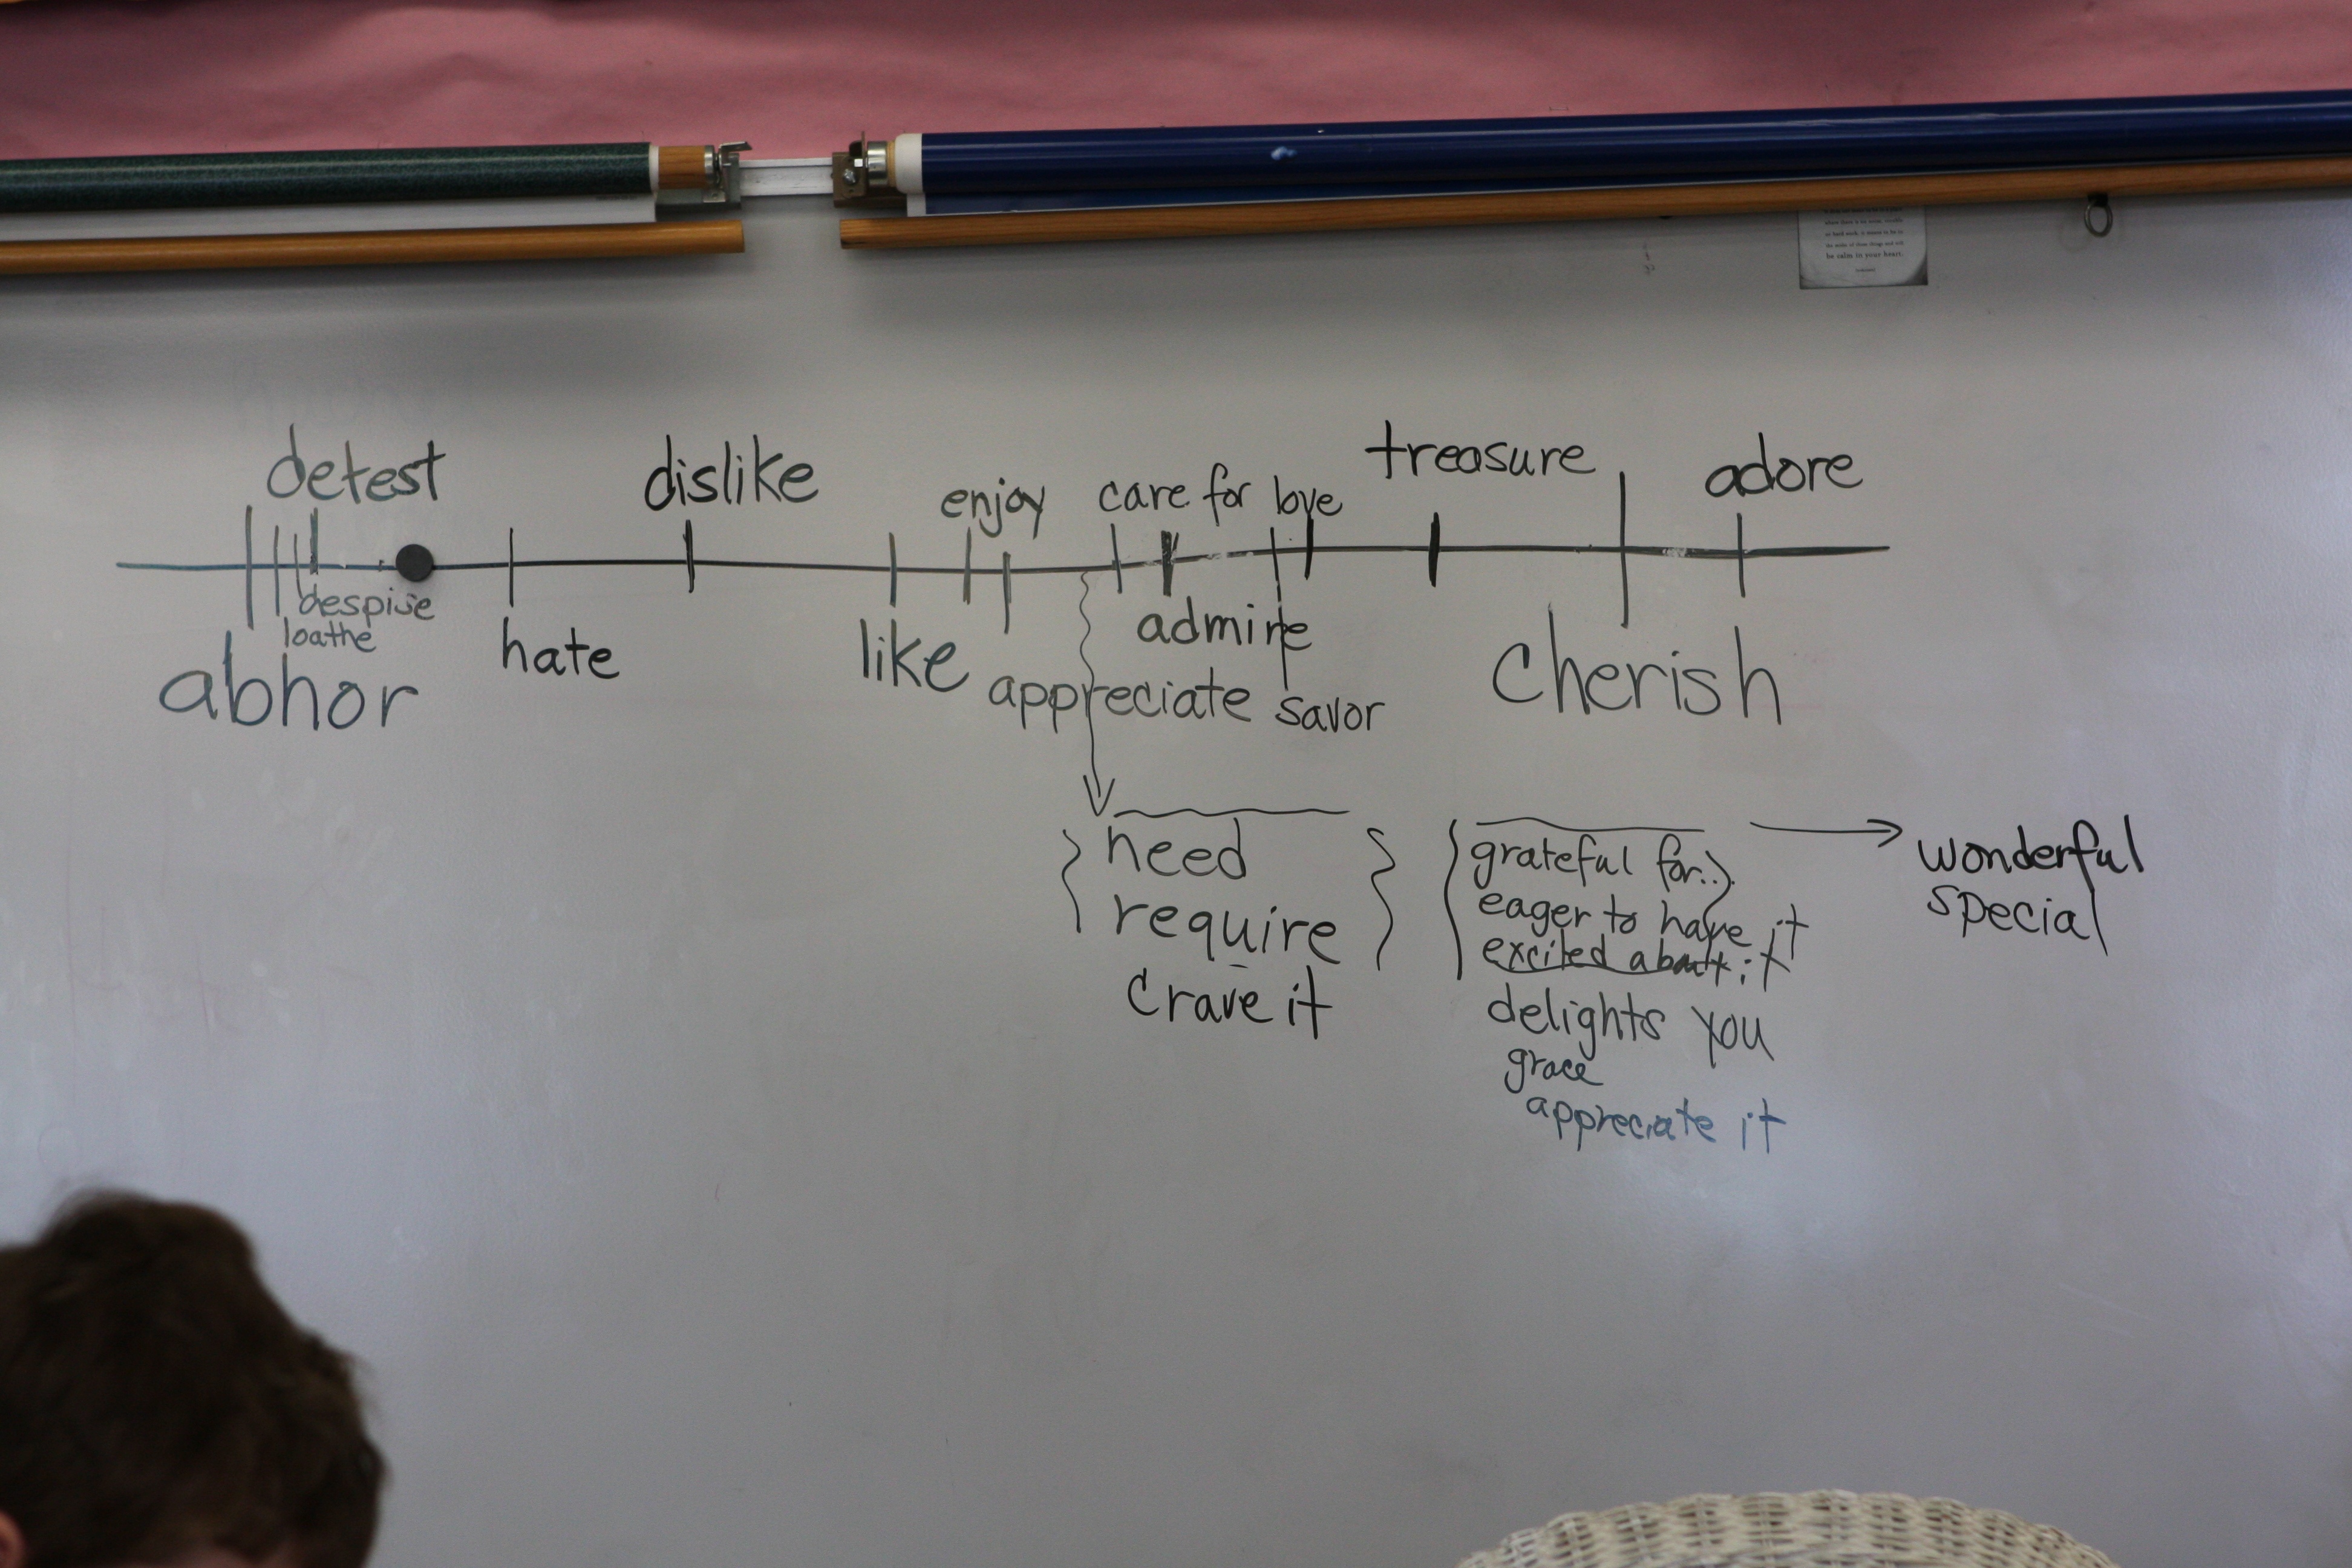 be calm in your heart.
detest
dislike
enjoy
care for
love
treasure
adore
despise
loathe
abhor
hate
like
appreciate
admire
savor
cherish
need
require
crave it
grateful for..
eager to have it
excited about it
delights you
grace
appreciate it
wonderful
special